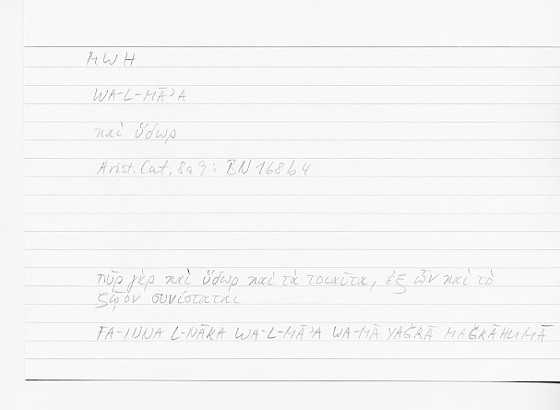 MWH
WA-L-MĀʾA
καὶ ὕδωρ
Arist. Cat. 8a9; BN 168b4
πῦρ γὰρ καὶ ὕδωρ καὶ τὰ τοιαῦτα, ἐξ ὧν καὶ τὸ
ζῷον συνίσταται
FA-INNA L-NĀRA WA-L-MĀʾA WA-MĀ YAǦRĀ MAǦRĀHUMĀ